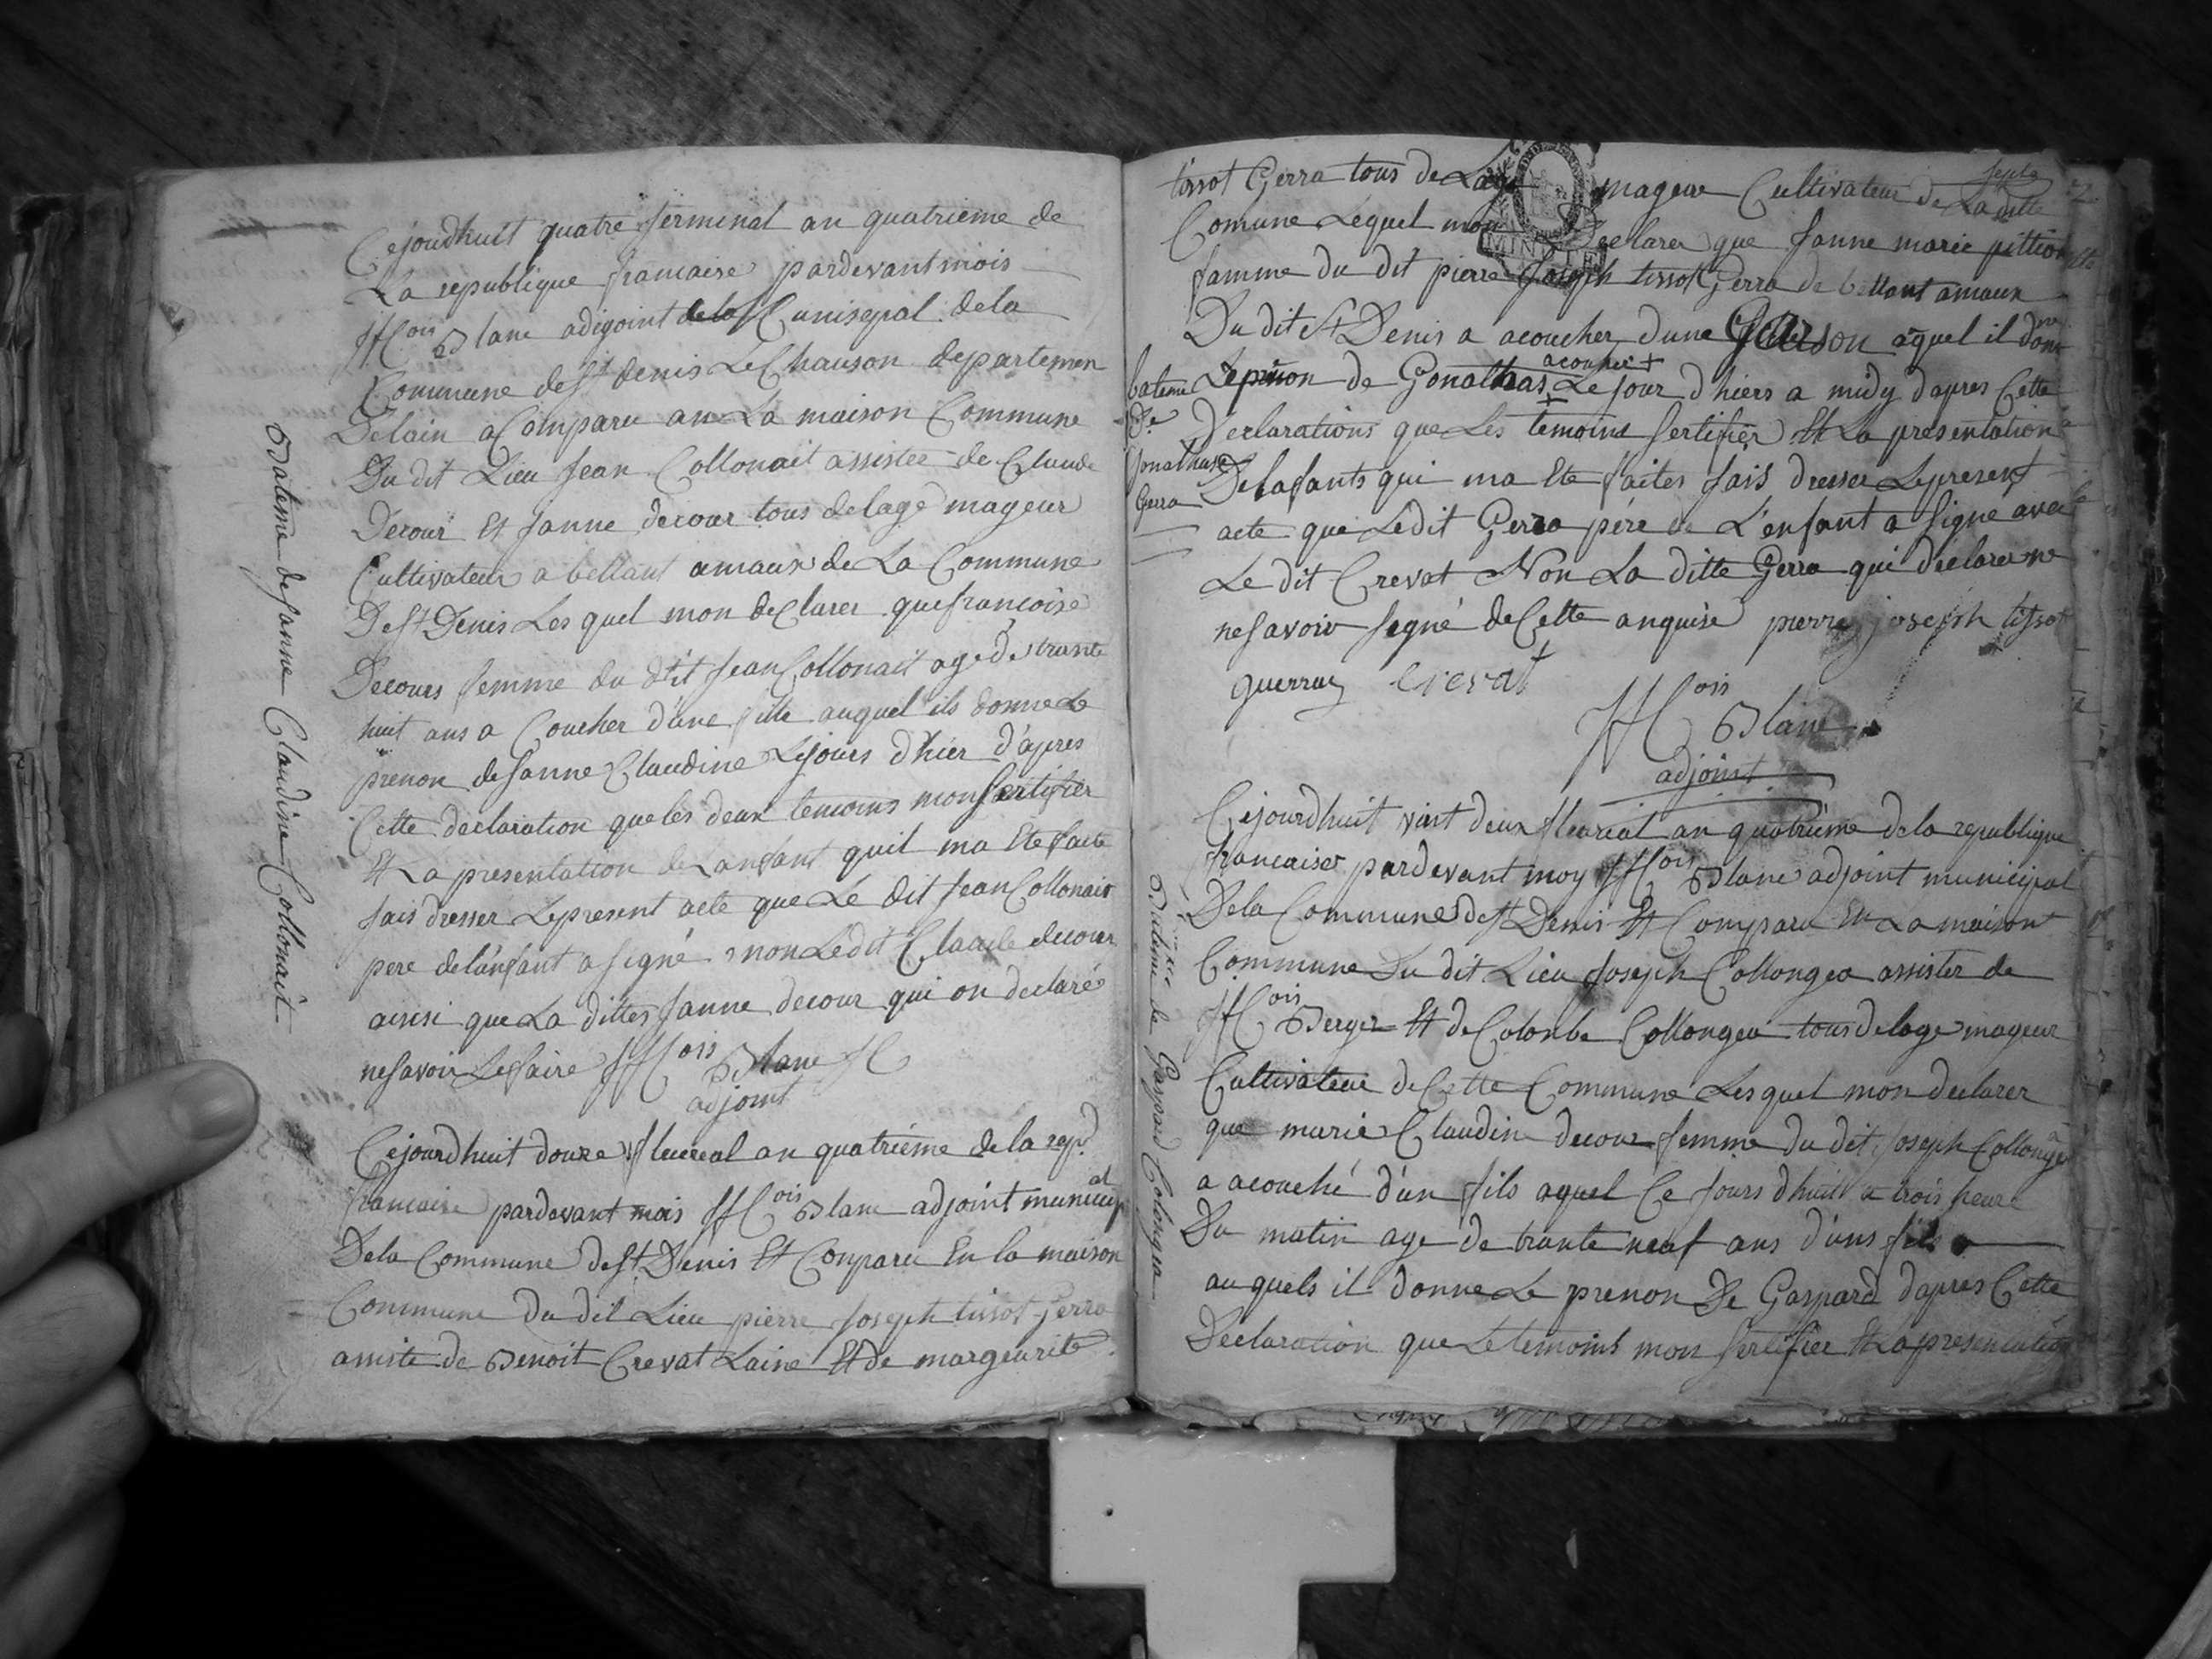 Bateme de Janne Claudine Collonait
Cejoudhuit quatre serminal an quatrieme de
La republique francaise pardevant mois
ffcois Blanc adigoint dela Cunisepal dela
Commune de St denis Le Chauson departemen
Delain a Comparu an La maison Commune
Du dit Lieu Jean Collonait assistee de Claude
Decour Et Janne decour tous delage mageur
Cultivateur a bellant amaux de La Commune
De St Denis Les quel mon declarer que francoise
Decours femme du dtit Jean Collonait age de trante
huit ans a Coucher d'une fille auquel ils donne Le
prenon de Janne Claudine Le jours d'hier d'apres
Cette declaration que les deux temoins mon sertifier
Et La presentation de Lanfant quil ma Ete faite
fais dresser Le present acte que Le dit Jean Collonait
pere de lanfant a signé non Le dit Claude decour
ainsi que La dittes Janne decour qui on declaré
ne savoir Le faire ffcois Blanc
adjoint
Cejourdhuit douze fleureal an quatriéme de la rep.
francaise pardevant mois ffcois Blanc adjoint municipal
De la Commune de St Denis Et Conparu En la maison
Commune du dit Lieu pierre Joseph tissot Gerra
assiste de Benoit Crevat Laine Et de margeurite
tissot Gerra tous de Lage mageur Cultivateur de La ditte
Comune Lequel mon Declarer que Janne marie pittion
famme du dit pierre Joseph tissot Gerra de bellant amaux
Du dit St Denis a acoucher d'une Garson aquel il donne
bateme de Jonathase Gerra
Le prenon de Gonathas acoucher + Le jour d'hiers a midy dapres Cette
Declarations que Les temoins sertifier Et La presentation
De lafants qui ma Ete faites fais dresser Le present
acte que Ledit Gerra pére de L'enfant a signe avec
Le dit Crevat Non La ditte Gerra qui declarer ne
ne savoir segné de Cette anquise pierre joseph tissot
guerraz Crevat
ffcois Blanc
adjoint
Bateme de Gaspard Colongea
Cejourdhuit vint deux fleureal an quatriéme dela republique
francaises pardevant moy ffcois Blanc adjoint municipal
De la Commune de St Denis Et Comparu En La maison
Commune Du dit Lieu Joseph Collongea assister de
ffcois Berger Et de Colonbe Collongea tous de lage mageur
Cultivateur de Cette Commune Les quel mon declarer
que marie Claudine decour femme du dit Joseph Collongea
a acouché d'un fils aquel Ce jours dhuit a trois heure
Du matin age de trante neuf ans d'uns fils
au quels il donne Le prenon De Gaspard dapres Cette
Declaration que Le temoins mon sertifier Et La presentation